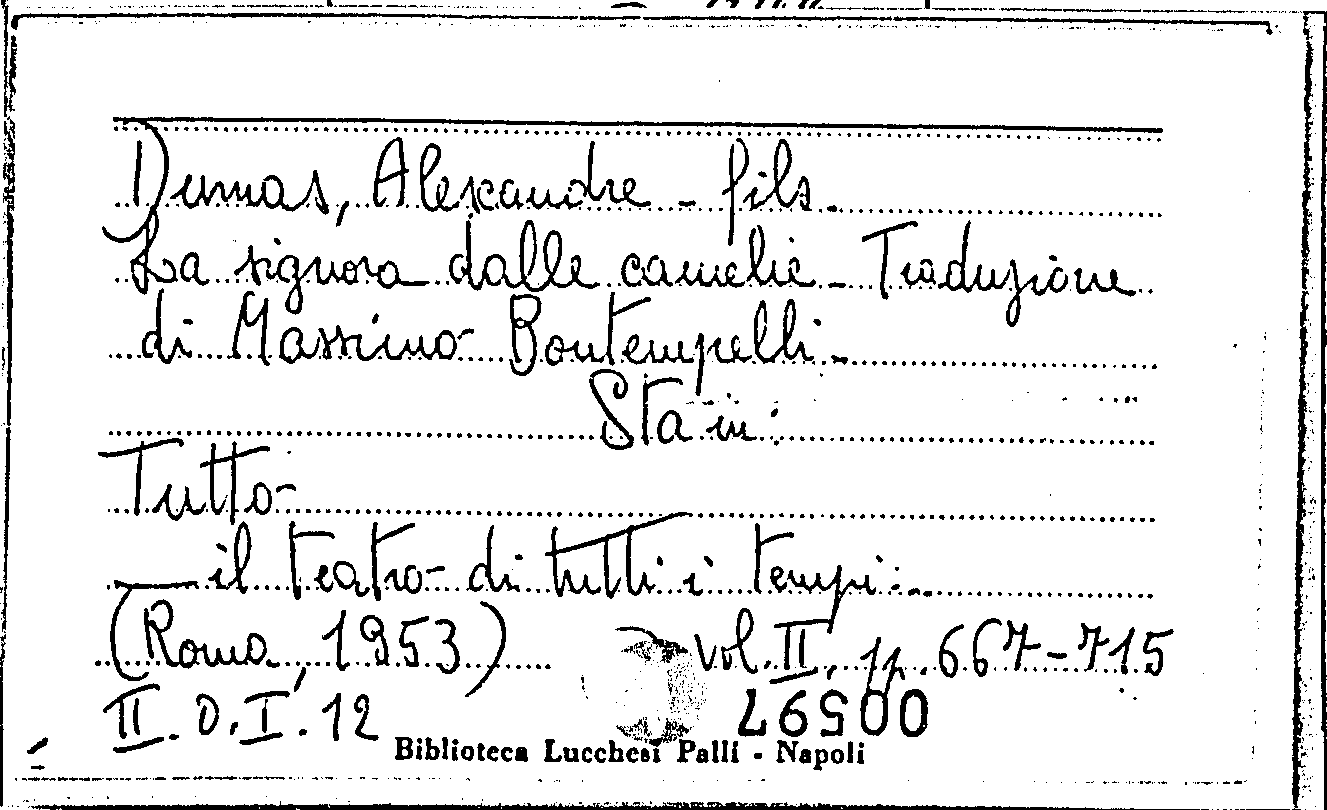 Dumas, Alexandre - fils.
La signora dalle camelie - Traduzione
di Massimo Bontempelli -
Sta in:
Tutto
— il teatro di tutti i tempi:
(Roma, 1953) vol. II. pp. 667-715
II. O. I. 12
00597
Biblioteca Lucchesi Palli - Napoli